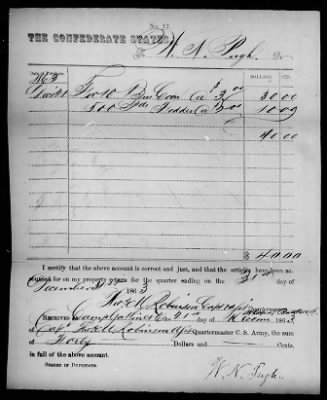 No. 12.
THE CONFEDERATE STATES,
To W. N. Pugh, Dr
DOLLARS. CTS.
1863
For 10 Bus Corn @ $3.00 30.00
500 lbs Fodder @ 2.00 10.00
40.00
$ 40.00
I certify that the above account is correct and just, and that the articles have been accounted for on my property return for the quarter ending on the 31st day of
December 1863
RECEIVED Camp 21st day of 1863, of
Capt Robinson Quartermaster C. S. Army, the sum
of Forty Dollars and Cents,
in full of the above account.
SIGNED IN DUPLICATE.
W. N. Pugh